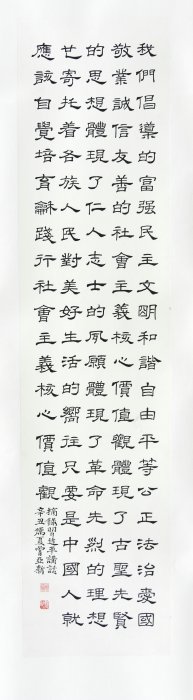 我們倡導的富强民主文明和諧自由平等公正法治愛國
敬業誠信友善的社會主義核心價值觀體現了古聖先賢
的思想體現了仁人志士的夙願體現了革命先烈的理想
也寄托着各族人民對美好生活的嚮往只要是中國人就
應該自覺培育龢踐行社會主義核心價值觀
習近平講話
辛丑